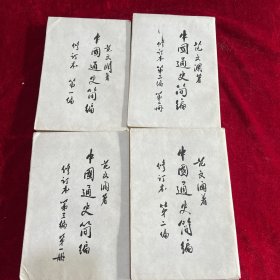 范文澜著
中國通史简编
修订本 第一编
范文澜著
中國通史简编
修订本 第三编 第二册
范文澜著
中國通史简编
修订本 第三编 第一册
范文澜著
中國通史简编
修订本 第二编